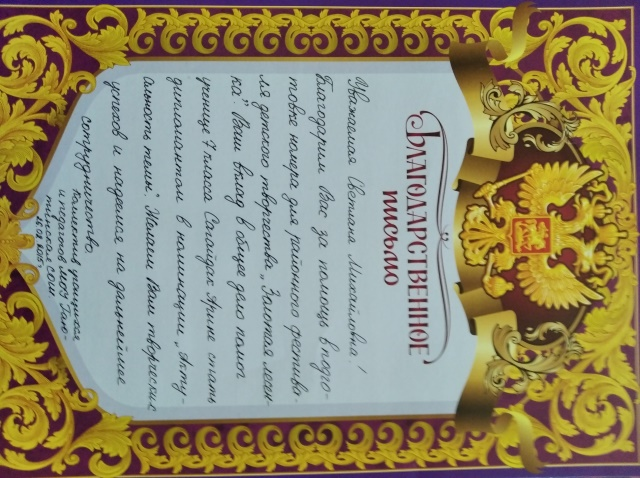 Благодарственное
письмо
Уважаемая Светлана Михайловна!
Благодарим Вас за помощь в подго-
товке номера для районного фестива-
ля детского творчества „Золотая мас-
ка". Ваш вклад в общее дело помог
ученице 7 класса Сагайдак Арине стать
дипломантом в номинации „Акту-
альность темы". Желаем Вам творческих
успехов и надеемся на дальнейшее
сотрудничество.
Коллектив учащихся
и педагогов МОУ
тинская СОШ